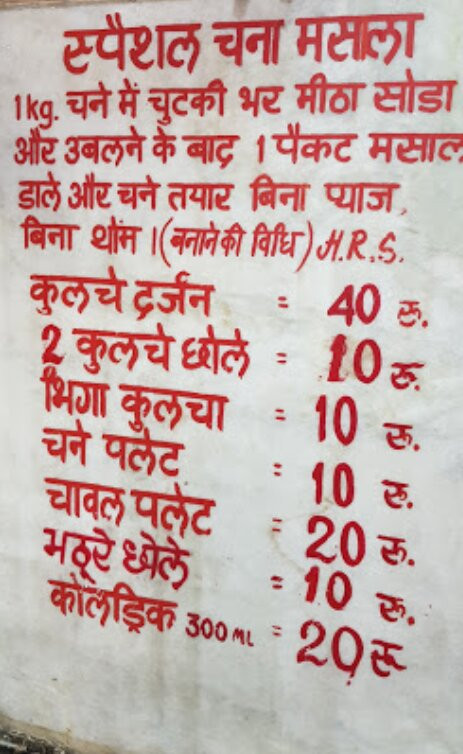 स्पैशल चना मसाला
1kg. चने में चुटकी भर मीठा सोडा
और उबलने के बाद 1 पैकट मसाल
डाले और चने तयार बिना प्याज,
बिना थौम ।(बनाने की विधि) H.R.S.
कुलचे दर्जन = 40 रु.
2 कुलचे छोले = 10 रु.
भिगा कुलचा = 10 रु.
चने पलेट = 10 रु.
चावल पलेट = 20 रु.
भठूरे छोले = 10 रु.
कोलड्रिक 300 ML = 20 रु